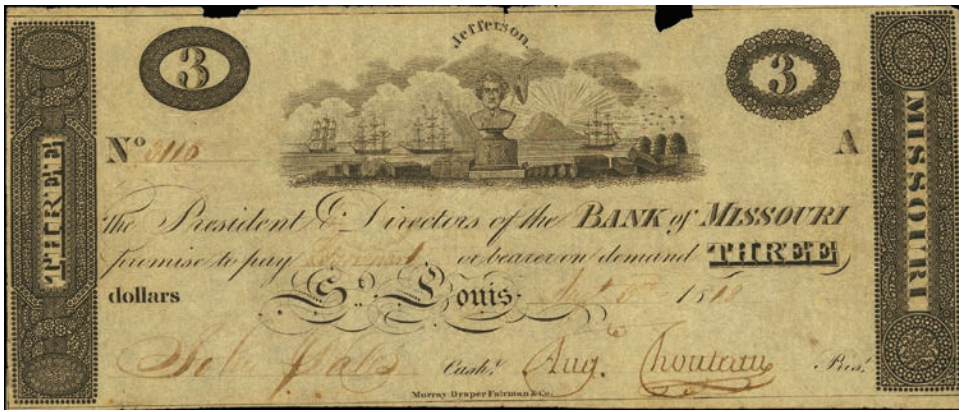 Jefferson.
3
3
THREE
MISSOURI
No 3118
A
The President & Directors of the BANK of MISSOURI
promise to pay or bearer on demand THREE
dollars St. Louis 1818
Cashr. Aug. Chouteau Prest.
Murray Draper Fairman & Co.